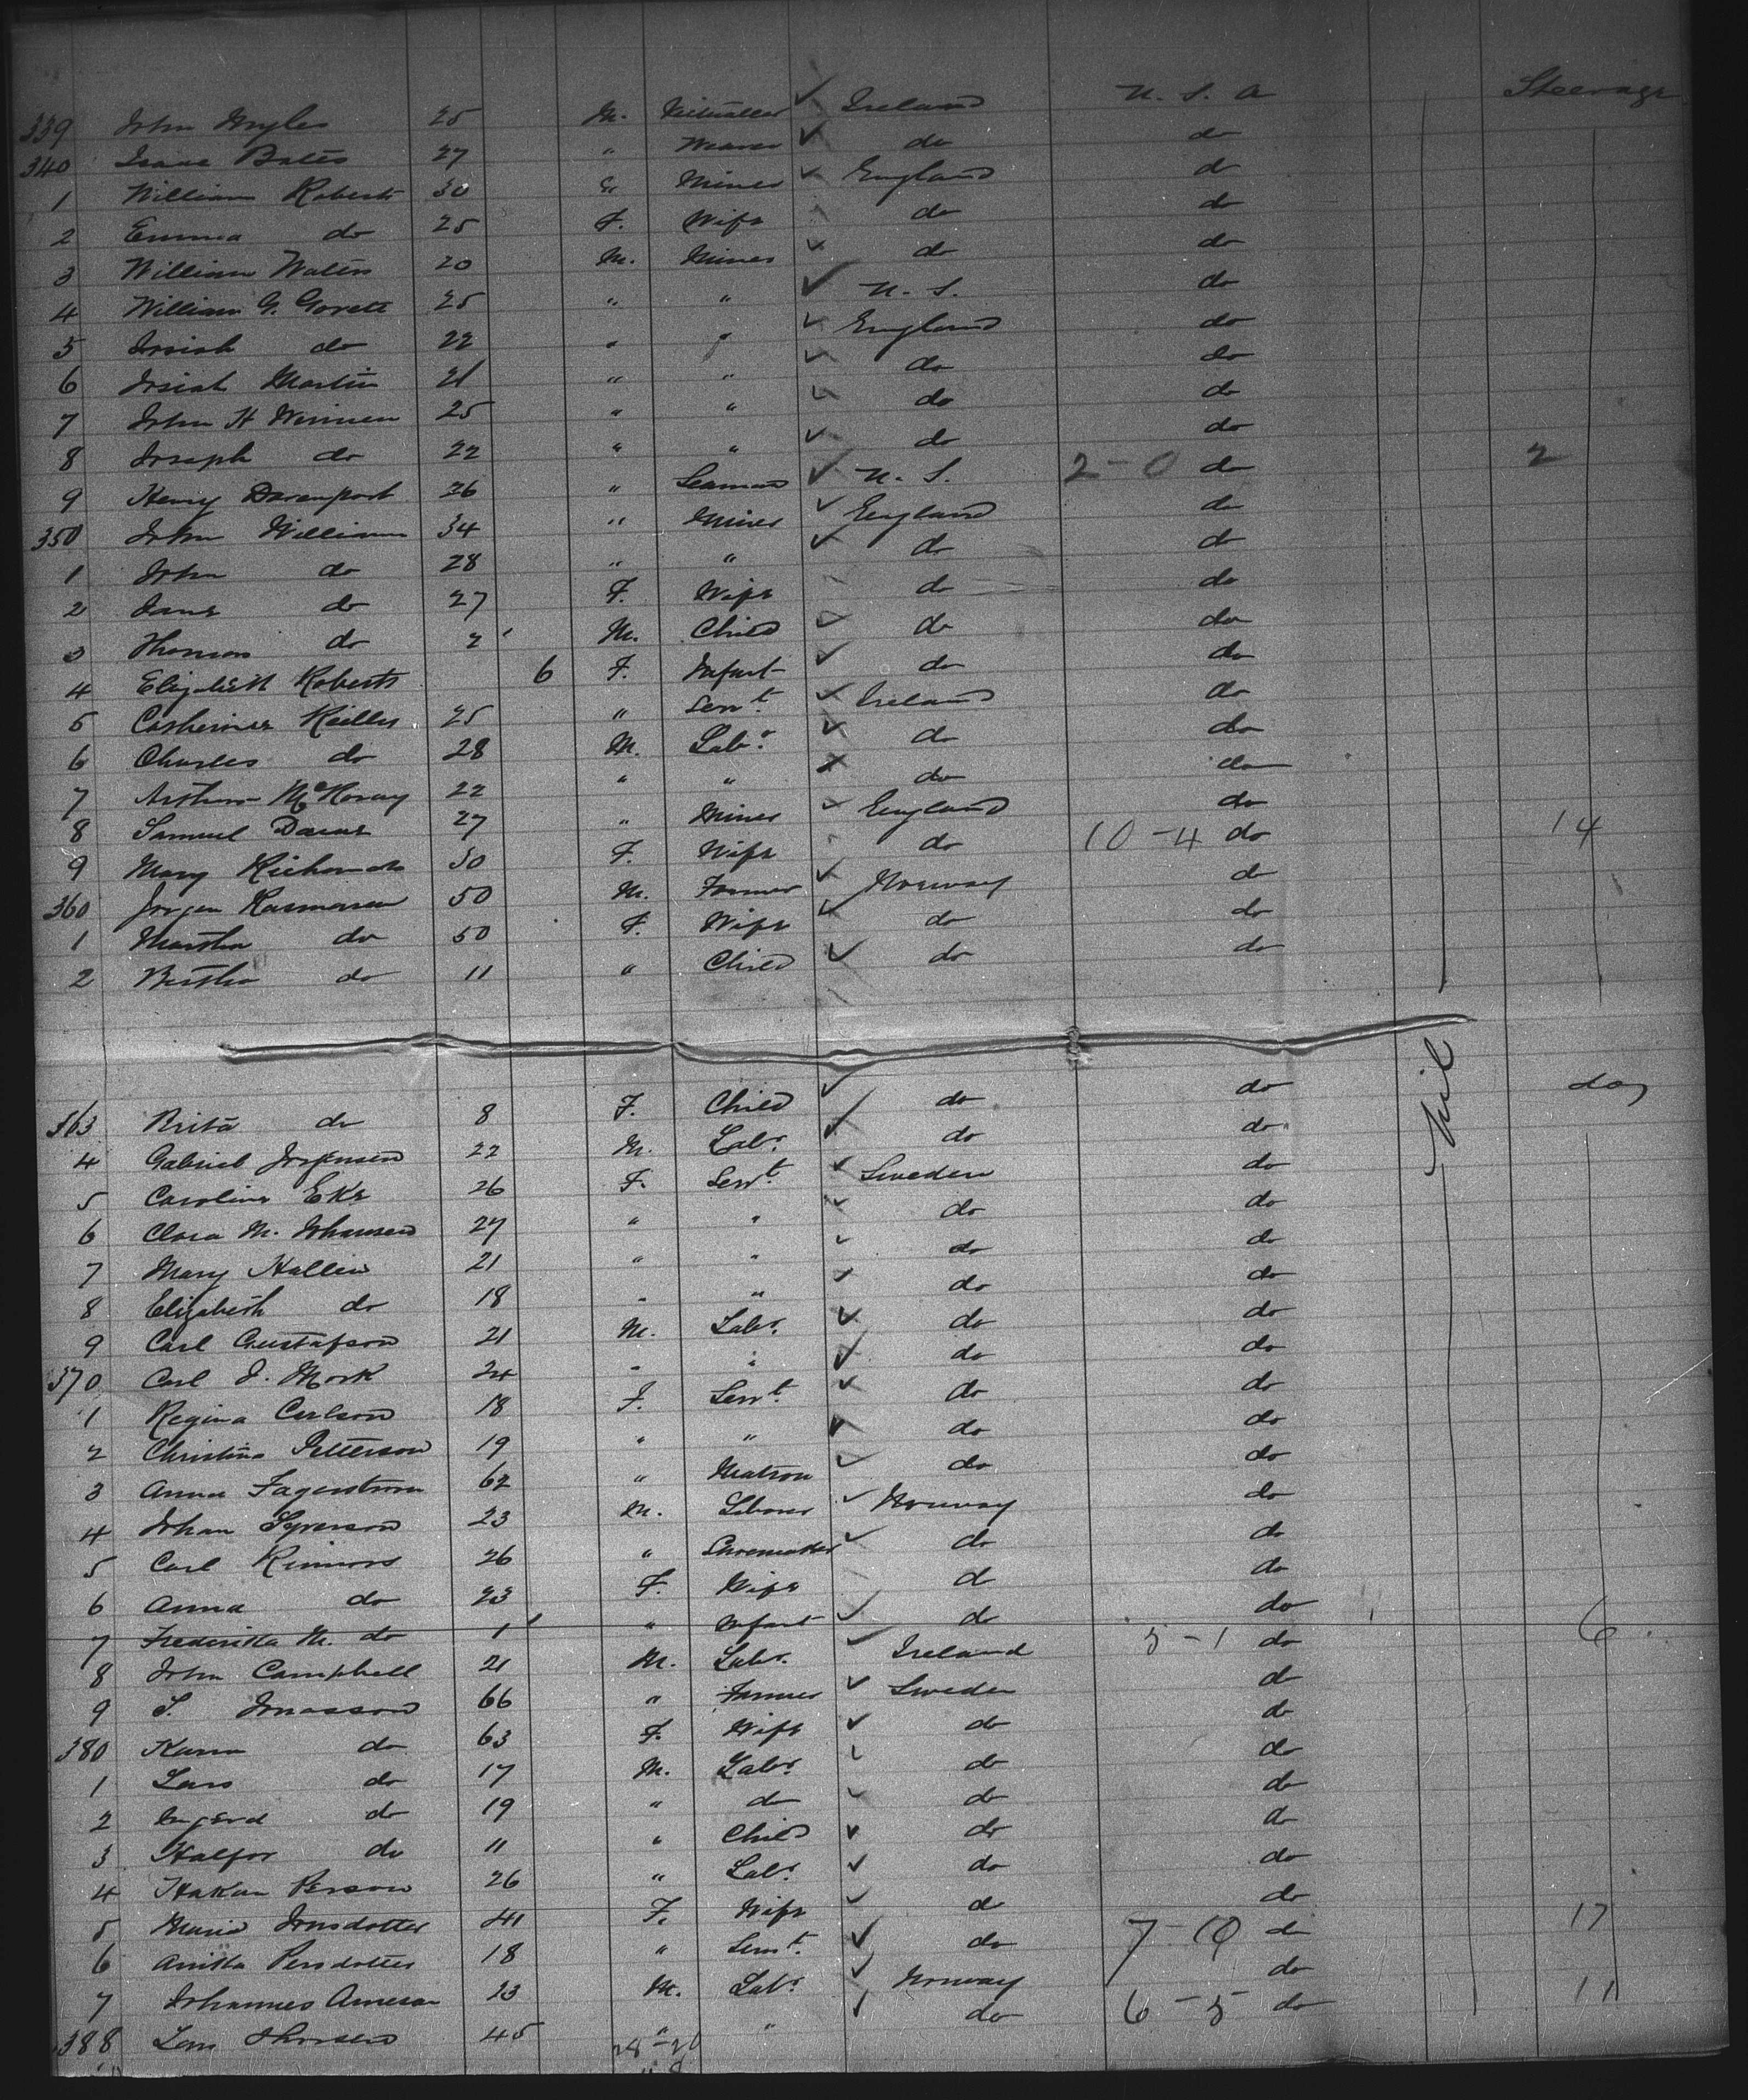 339 John Myles 25 M. Victualler ✓ Ireland U. S. A Steerage
340 Isaac Bates 27 " Weaver ✓ do do
1 William Roberts 30 " Miner ✓ England do
2 Emma do 25 F. Wife do do
3 William Waters 20 M. Miner ✓ do do
4 William G. 25 " " ✓ U. S. do
5 Josiah do 22 " " ✓ England do
6 Josiah Martin 21 " " ✓ do do
7 John H 25 " " ✓ do do
8 Joseph do 22 " " ✓ do do
9 Henry Davenport 26 " Seaman ✓ U. S. 2-0 do 2
350 John Williams 34 " Miner ✓ England do
1 John do 28 " " ✓ do do
2 Jane do 27 F. Wife do do
3 Thomas do 2 M. Child ✓ do do
4 Elizabeth Roberts 6 F. Infant ✓ do do
5 Catherine Reilly 25 " Servt. ✓ Ireland do
6 Charles do 28 M. Labr. ✓ do do
7 Arthur 22 " " ✓ do do
8 Samuel 27 " Miner ✓ England do
9 Mary Richards 30 F. Wife do 10-4 do 14
360 Jorgen Rasmussen 50 M. Farmer ✓ Norway do
1 Martha do 50 F. Wife ✓ do do
2 Bertha do 11 " Child ✓ do do
363 Brita do 8 F. Child ✓ do do Nil do
4 Gabriel Jorgensen 22 M. Labr. ✓ do do
5 Caroline Eke 26 F. Servt. ✓ Sweden do
6 Clara M. Johansen 27 " " ✓ do do
7 Mary Hallin 21 " " ✓ do do
8 Elizabeth do 18 " " ✓ do do
9 Carl Gustafson 21 M. Labr. ✓ do do
370 Carl J. Mork 24 " " ✓ do do
1 Regina Carlson 18 F. Servt. ✓ do do
2 Christina Petterson 19 " " ✓ do do
3 Anna Fagerstrom 62 " Matron ✓ do do
4 Johan Syverson 23 M. Laborer ✓ Norway do
5 Carl 26 " Shoemaker ✓ do do
6 Anna do 23 F. Wife do do
7 Frederikka M. do 1 " Infant ✓ do do
8 John Campbell 21 M. Labr. ✓ Ireland 5-1 do 6
9 S. Jonasson 66 " Farmer ✓ Sweden do
380 Karin do 63 F. Wife ✓ do do
1 Lars do 17 M. Labr. ✓ do do
2 do 19 " do ✓ do do
3 Halfor do 11 " Child ✓ do do
4 Hakan Person 26 " Labr. ✓ do do
5 Maria Jonsdotter 41 F. Wife ✓ do do
6 Persdotter 18 " Servt. ✓ do 7-10 do 17
7 Johannes 23 M. Labr. ✓ Norway do
388 Lars 45 " " ✓ do 6-5 do 11
28-26